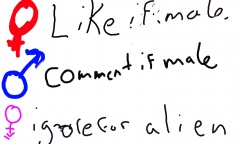 Like if male.
Comment if male
ignore for alien